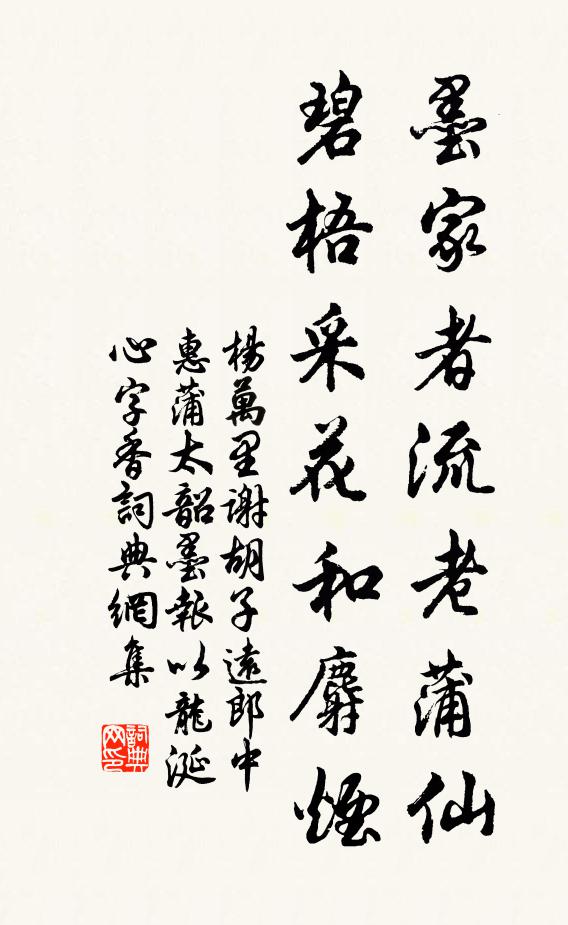 墨家者流老蒲仙
碧梧采花和麝煙
楊萬里謝胡子遠郎中
惠蒲太韶墨報以龍涎
心字香詞典網集
詞典
网印